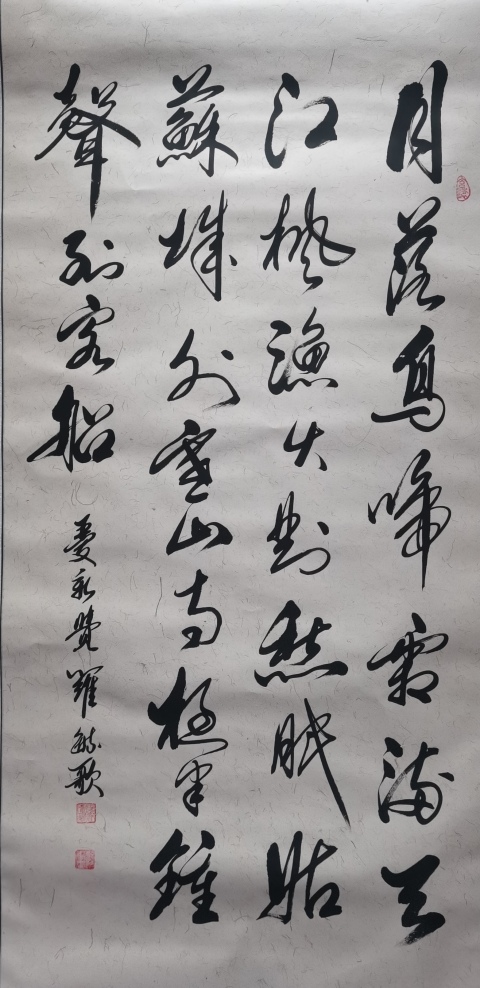 月落烏啼霜滿天
江楓漁火對愁眠姑
蘇城外寒山寺夜半鐘
聲到客船
愛新覺羅毓歌